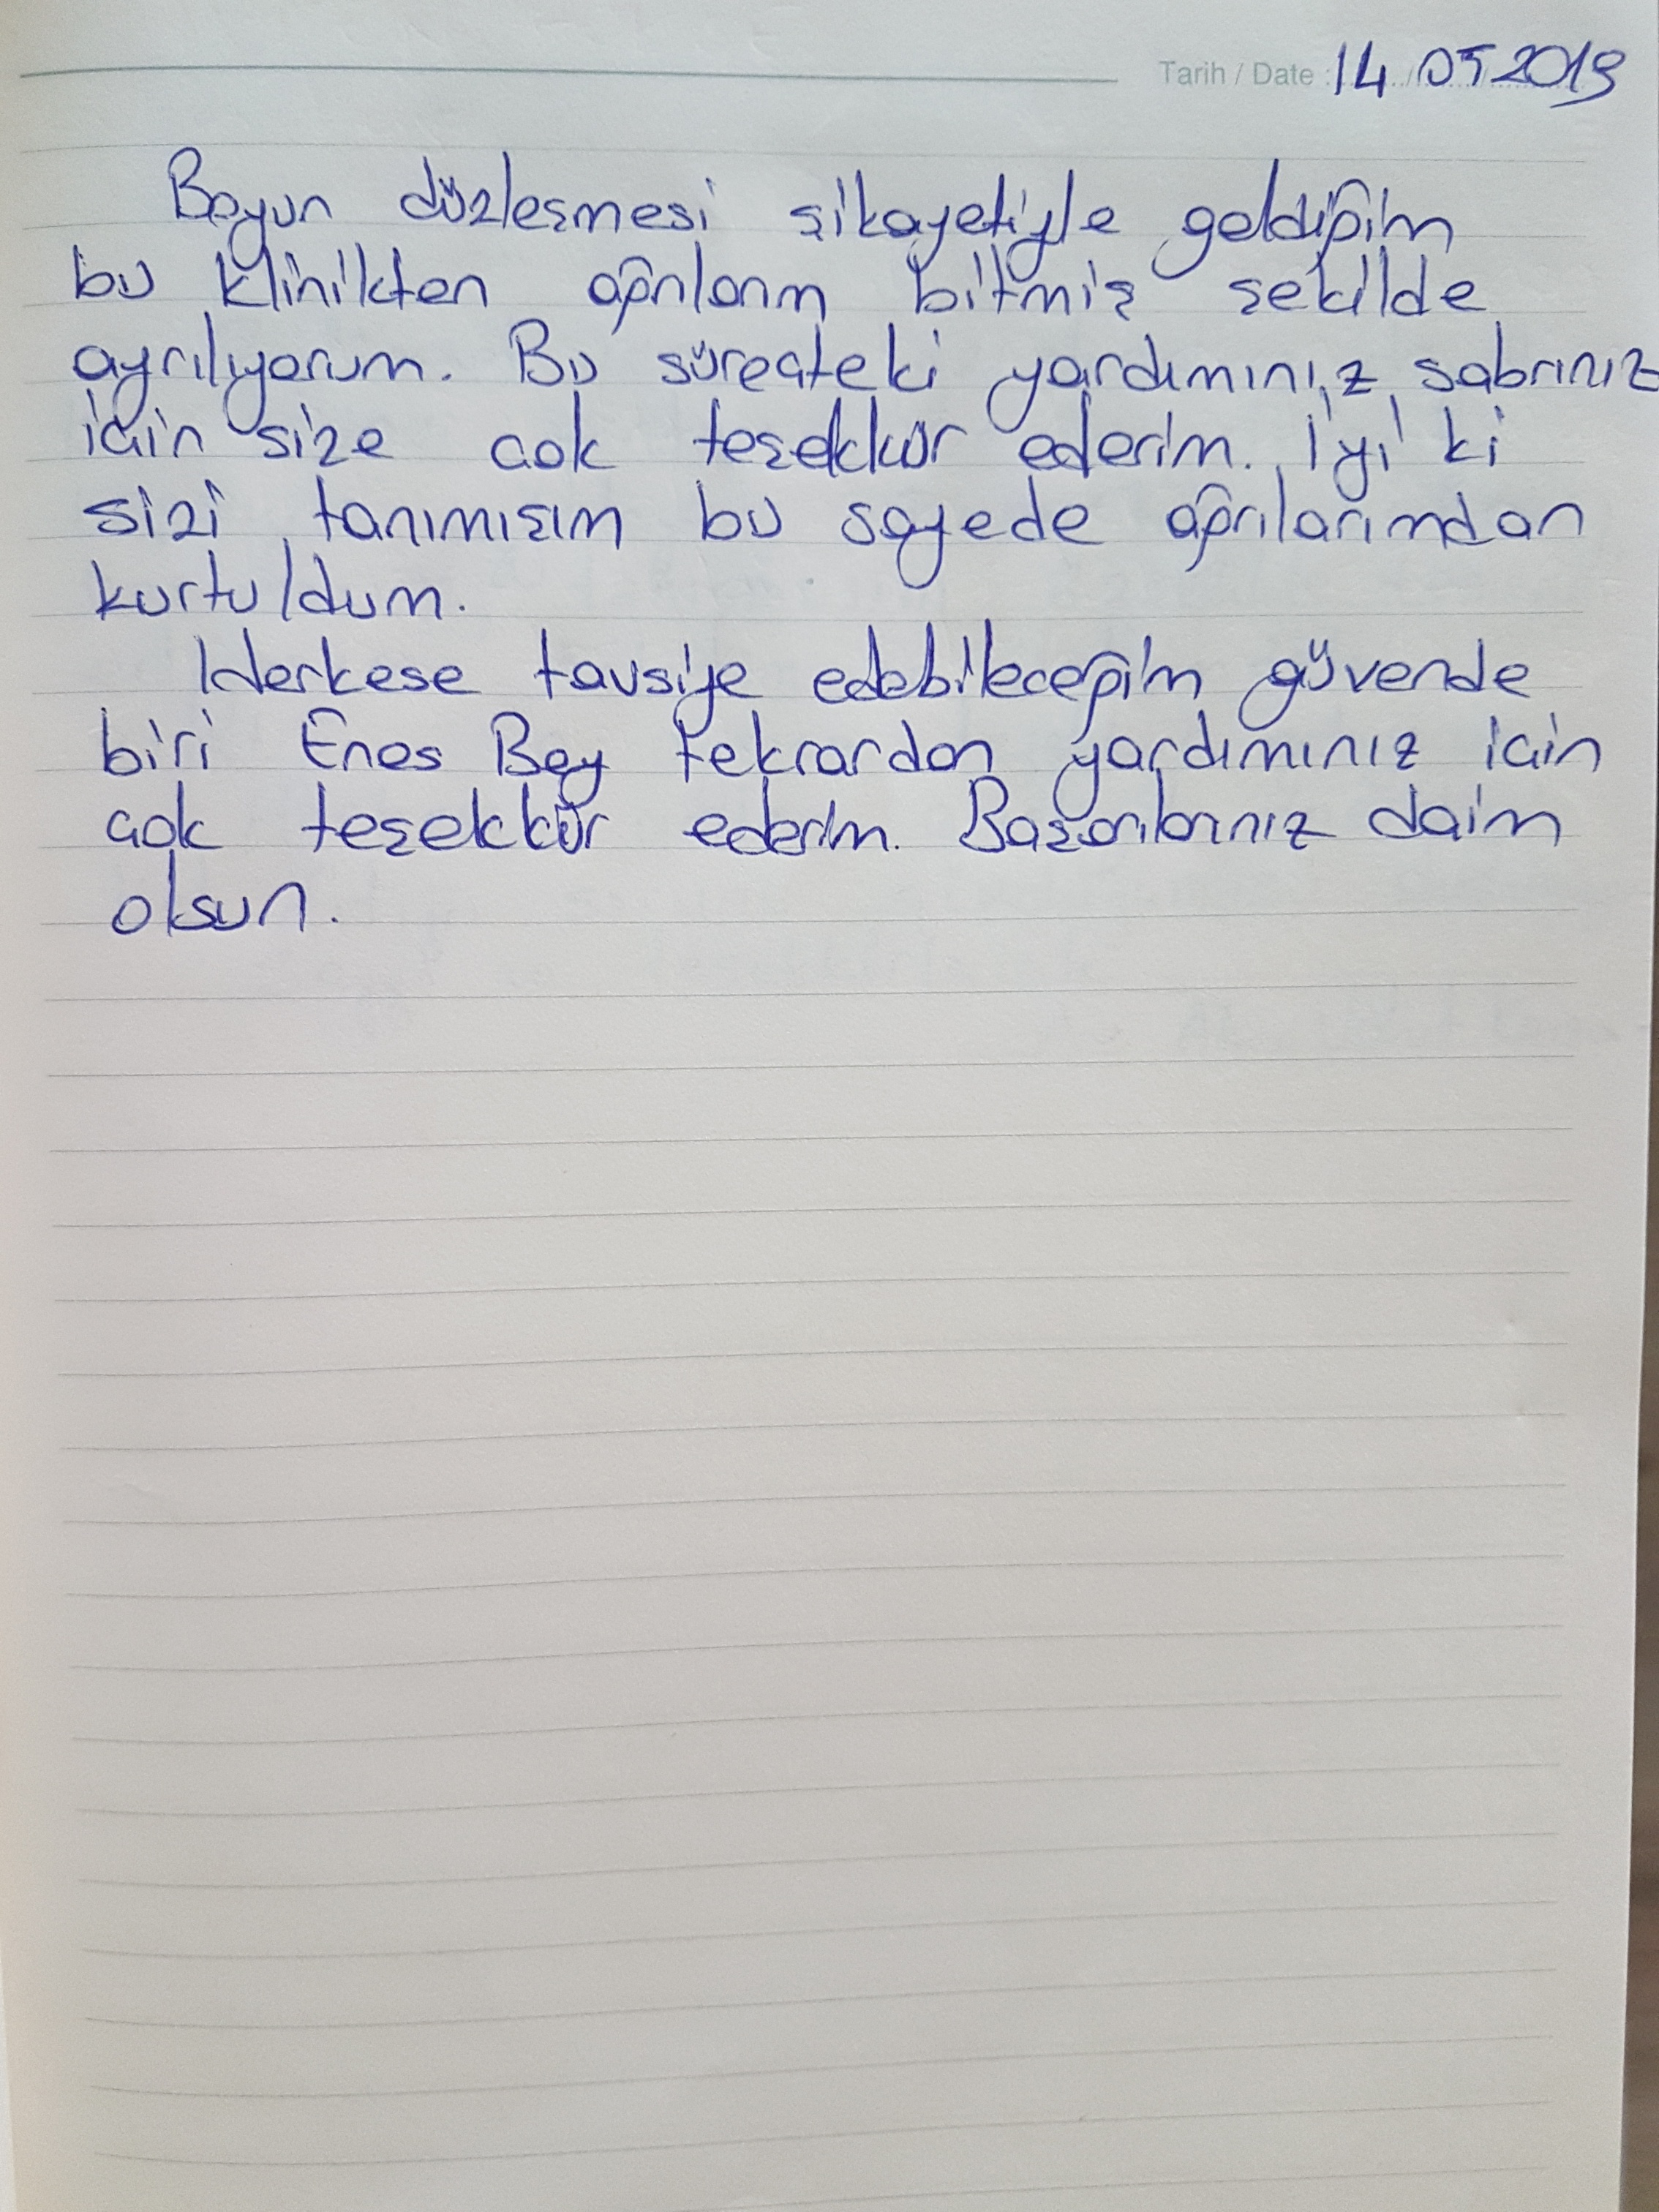 Tarih / Date : 14/05 2019
Boyun düzleşmesi şikayetiyle geldiğim
bu klinikten ağrılarım bitmiş şekilde
ayrılıyorum. Bu süreçteki yardımınız, sabrınız
için size çok teşekkür ederim. İyi ki
sizi tanımışım bu sayede ağrılarımdan
kurtuldum.
Herkese tavsiye edebileceğim güvende
biri Enes Bey tekrardan yardımınız için
çok teşekkür ederim. Başarılarınız daim
olsun.